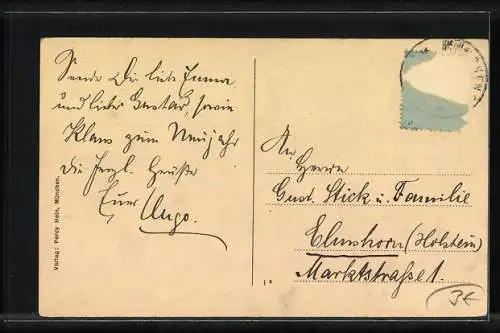 Sende Dir liebe Emma
und lieber Gustav, sowie
Klaus zum Neujahr
die herzl. Grüße
Euer Hugo.
Verlag: Percy Hein, München.
An
Herrn
Gust. Stick u. Familie
Elmshorn (Holstein)
Marktstraße 1.
3€